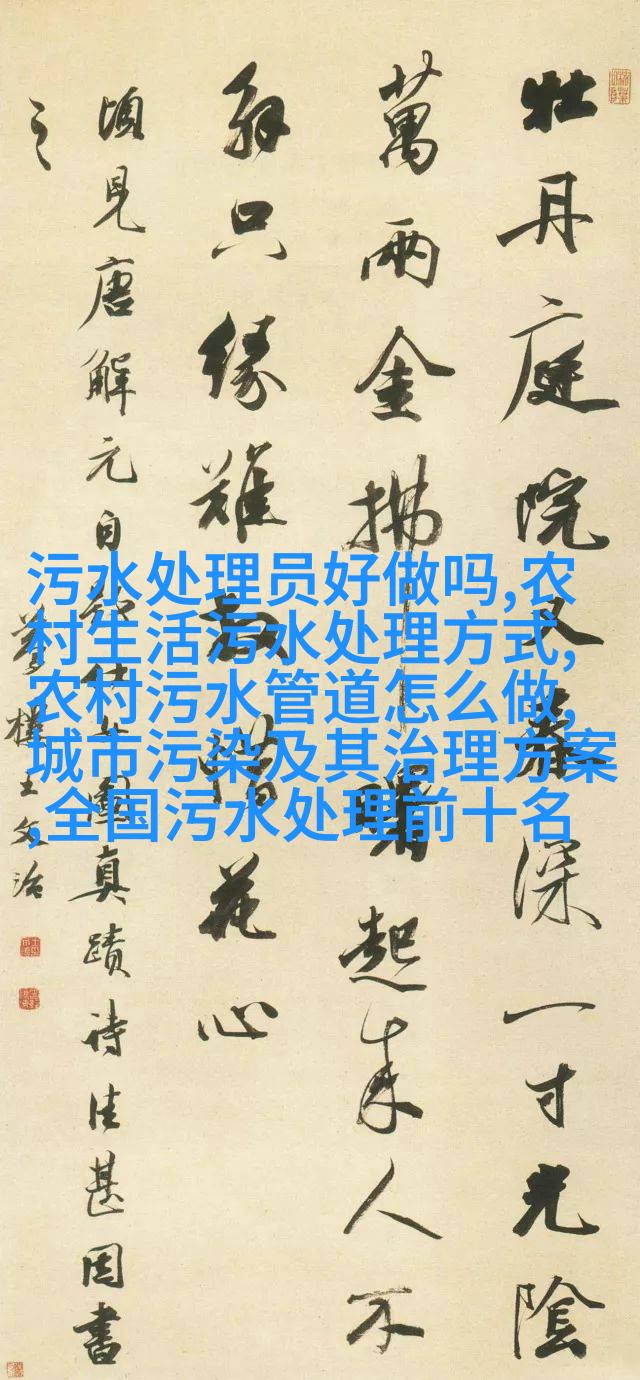 牡丹庭院又春深一寸光陰
萬兩金拂曙起來人不
解只緣難放惜花心
頃見唐解元自仕女圖真蹟詩佳甚因書
之
夢樓王文治
污水处理员好做吗,农
村生活污水处理方式,
农村污水管道怎么做,
城市污染及其治理方案
,全国污水处理前十名